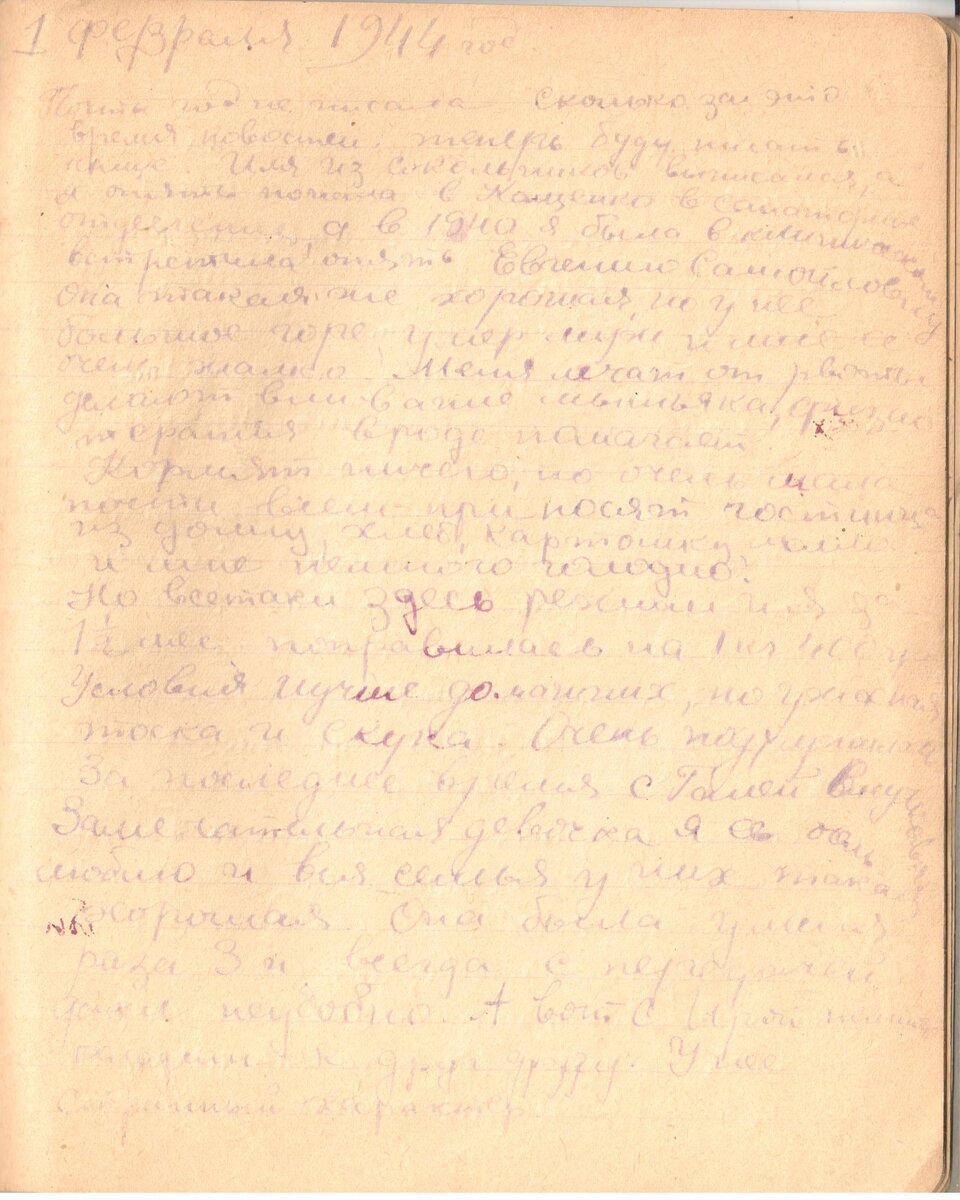 1 февраля 1944 год.
Почти год не писала сколько за это
время новостей, теперь буду писать
чаще. Иля из Сокольников выписался, а
я опять попала в Кащенко в санаторное
отделение, а в 1940 я была в
встретила опять Евгению Самойловну
Она такая же хорошая, но у нее
большое горе умер муж и мне ее
очень жалко. Меня лечат от рвоты
делают вливание мышьяка, физио
терапия вроде помогает.
Кормят ничего, но очень мало
почти всем приносят гостинцы
из дому, хлеб, картошку
и мне немного голодно.
Но всетаки здесь режим и я за
1½ мес поправилась на 1 кг 400 гр
Условия лучше домашних, но ужасная
тоска и скука. Очень подружилась
За последнее время с Галей
Замечательная девочка я ее очень
люблю и вся семья у них такая
хорошая Она была у меня
раза 3 и всегда с передачей
даже неудобно. А вот с Ирой
друг другу. У нее
странный характер